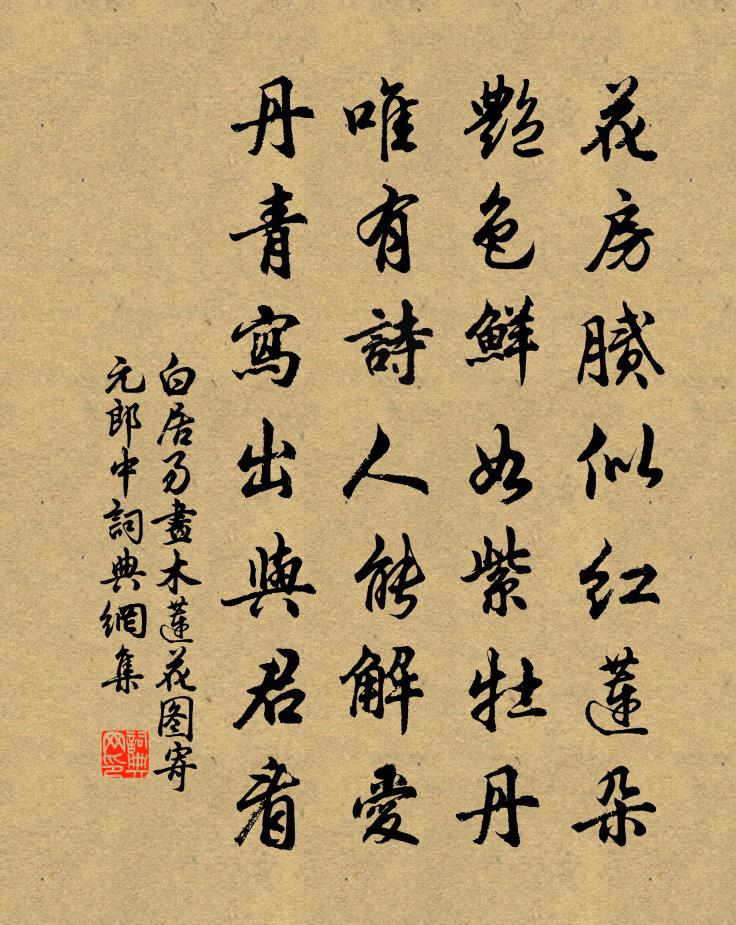 花房膩似紅蓮朵
艷色鮮如紫牡丹
唯有詩人能解愛
丹青寫出與君看
白居易畫木蓮花图寄
元郎中詞典網集
詞典
网印